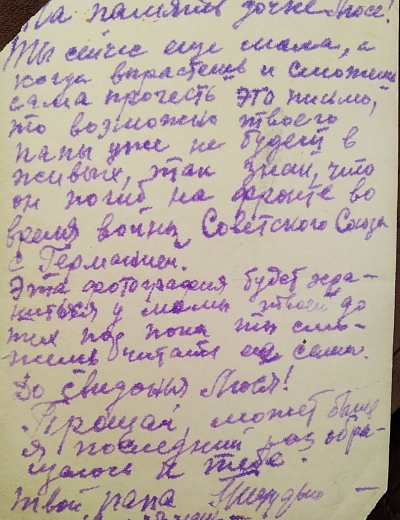 На память дочке Люсе!
Ты сейчс еще мала, а
когда вырастешь и сможешь
сама прочесть это письмо,
то возможно твоего
папы уже не будет в
живых, так знай, что
он погиб на фронте во
время войны Советского Союза
с Германией.
Эта фотография будет хра-
ниться у мамы твоей до
тех пор пока ты смо-
жешь читать её сама.
До свидонья Люся!
Прощай, может быть
я последний раз обра-
щаюсь к тебе.
Твой папа